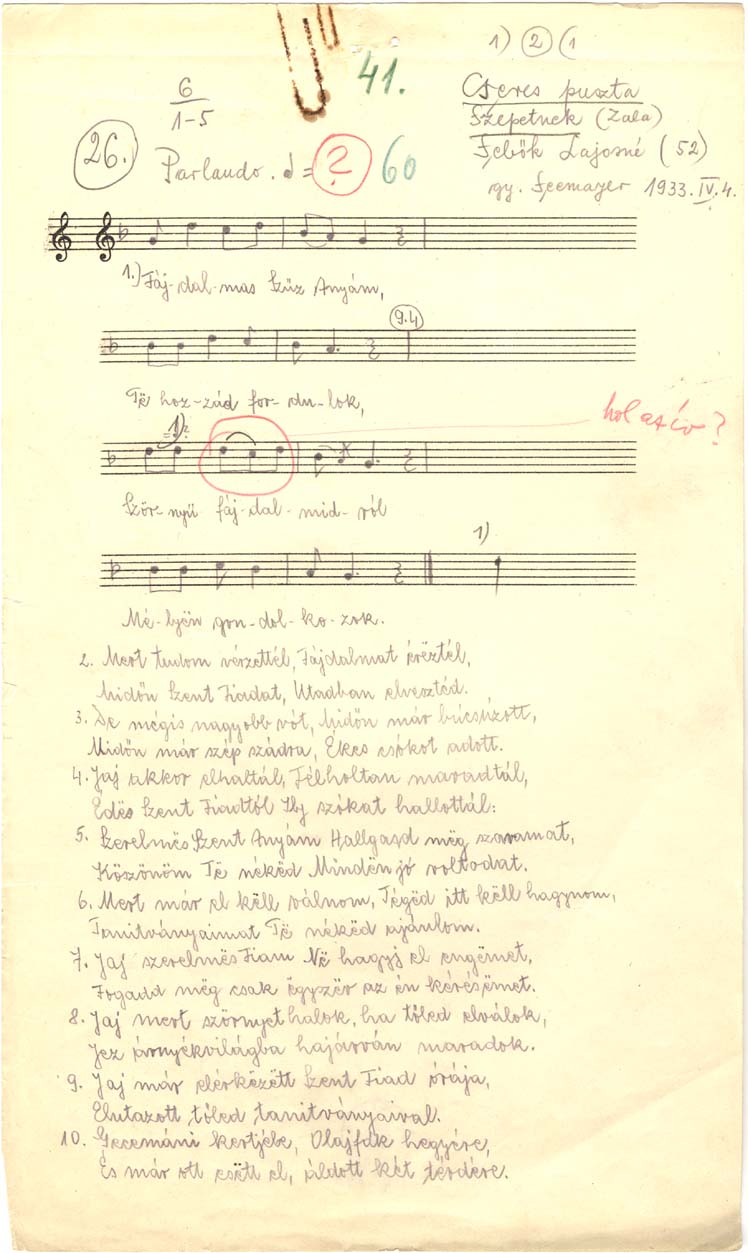 1) 2 (1
6
1-5
41.
Cseres puszta
Szepetnek (Zala)
26.
Parlando. = ? 60
Lajosné (52)
gy. Seemayer 1933. IV. 4.
1.) Fáj-dal-mas Szűz Anyám,
9.4
Të hoz-zád for-du-lok,
1)
hol az ív?
Ször-nyű fáj-dal-mid-ról
1)
Mé-lyën gon-dol-ko-zok.
2. Mert tudom vérzettél, Fájdalmat éreztél,
Midőn Szent Fiadat, Utadban elvesztéd.
3. De mégis nagyobb vót, Midőn már búcsúzott,
Midőn már szép szádra, Ékes csókot adott.
4. Jaj akkor elhaltál, Félholtan maradtál,
Édës Szent Fiadtól Ily szókat hallottál:
5. Szerelmës Szent Anyám Hallgasd mëg szavamat,
Köszönöm Të nékëd Mindën jó voltodat.
6. Mert már el këll válnom, Tégëd itt këll hagynom,
Tanitványaimat Të nékëd ajánlom.
7. Jaj szerelmës Fiam Në hagyj el engëmet,
Fogadd mëg csak ëgyszër az én kérésëmet.
8. Jaj mert szörnyet halok, ha tőled elválok,
árnyékvilágba hajárván maradok.
9. Jaj már elérkëzëtt Szent Fiad órája,
Elutazott tőled tanitványaival.
10. Gecemáni kertjébe, Olajfák hegyére,
És már ott esëtt el, áldott két térdére.